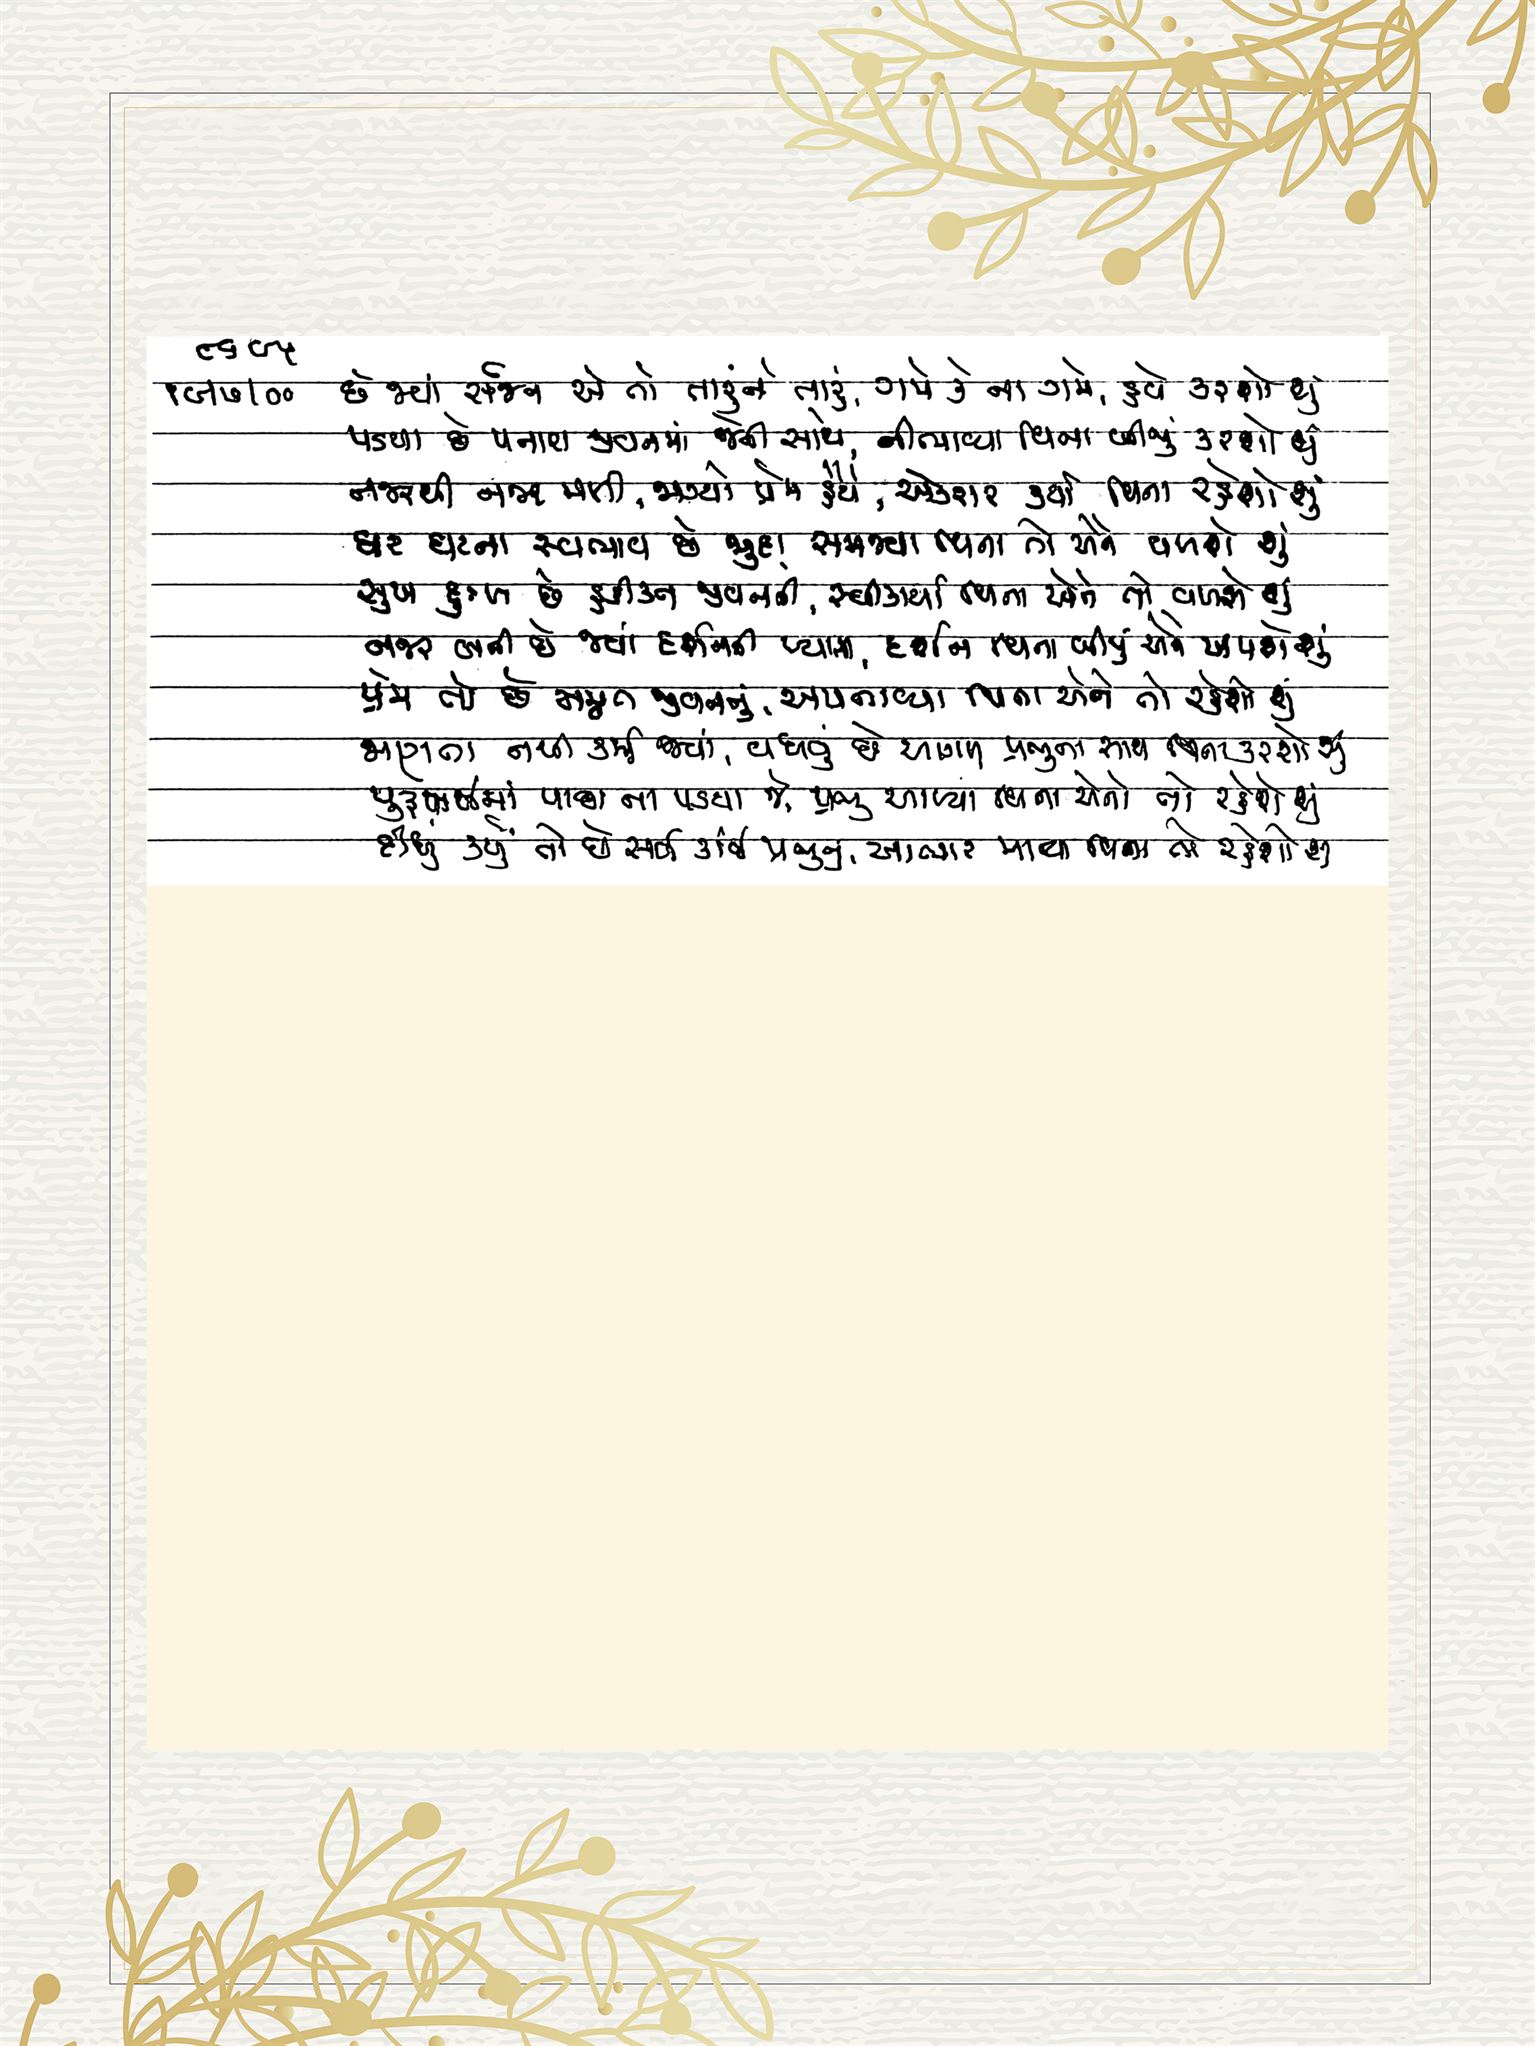 છે જ્યાં સર્જન એ તો તારુંને તારું, ગમે કે ના ગમે, હવે કરશો શું
પડયા છે પનારા જીવનમાં જેની સાથે, નીભાવ્યા વિના બીજું કરશો શું
નજરથી નજર મળી, જાગ્યો પ્રેમ હૈયે, એકરાર કર્યા વિના રહેશો શું
ઘર ઘટના સ્વભાવ છે જુદા, સમજ્યા વિના તો એને વળશે શું
સુખ દુઃખ છે હકીકત જીવનની, સ્વીકાર્યા વિના એને તો વળશે શું
નજર બની છે જ્યાં દર્શનની પ્યાસી, દર્શન વિના બીજું એને ખપશે શું
પ્રેમ તો છે અમૃત જીવનનું, અપનાવ્યા વિના એને તો રહેશો શું
જાણતા નથી કાંઈ જ્યાં, વધવું છે આગળ પ્રભુના સાથ વિના કરશો શું
પુરુષાર્થમાં પાછા ના પડયા જે, પ્રભુ આપ્યા વિના એનો તો રહેશે શું
કીધું કર્યું તો છે સર્વ કાંઈ પ્રભુનું, આભાર માન્યા વિના તો રહેશો શું